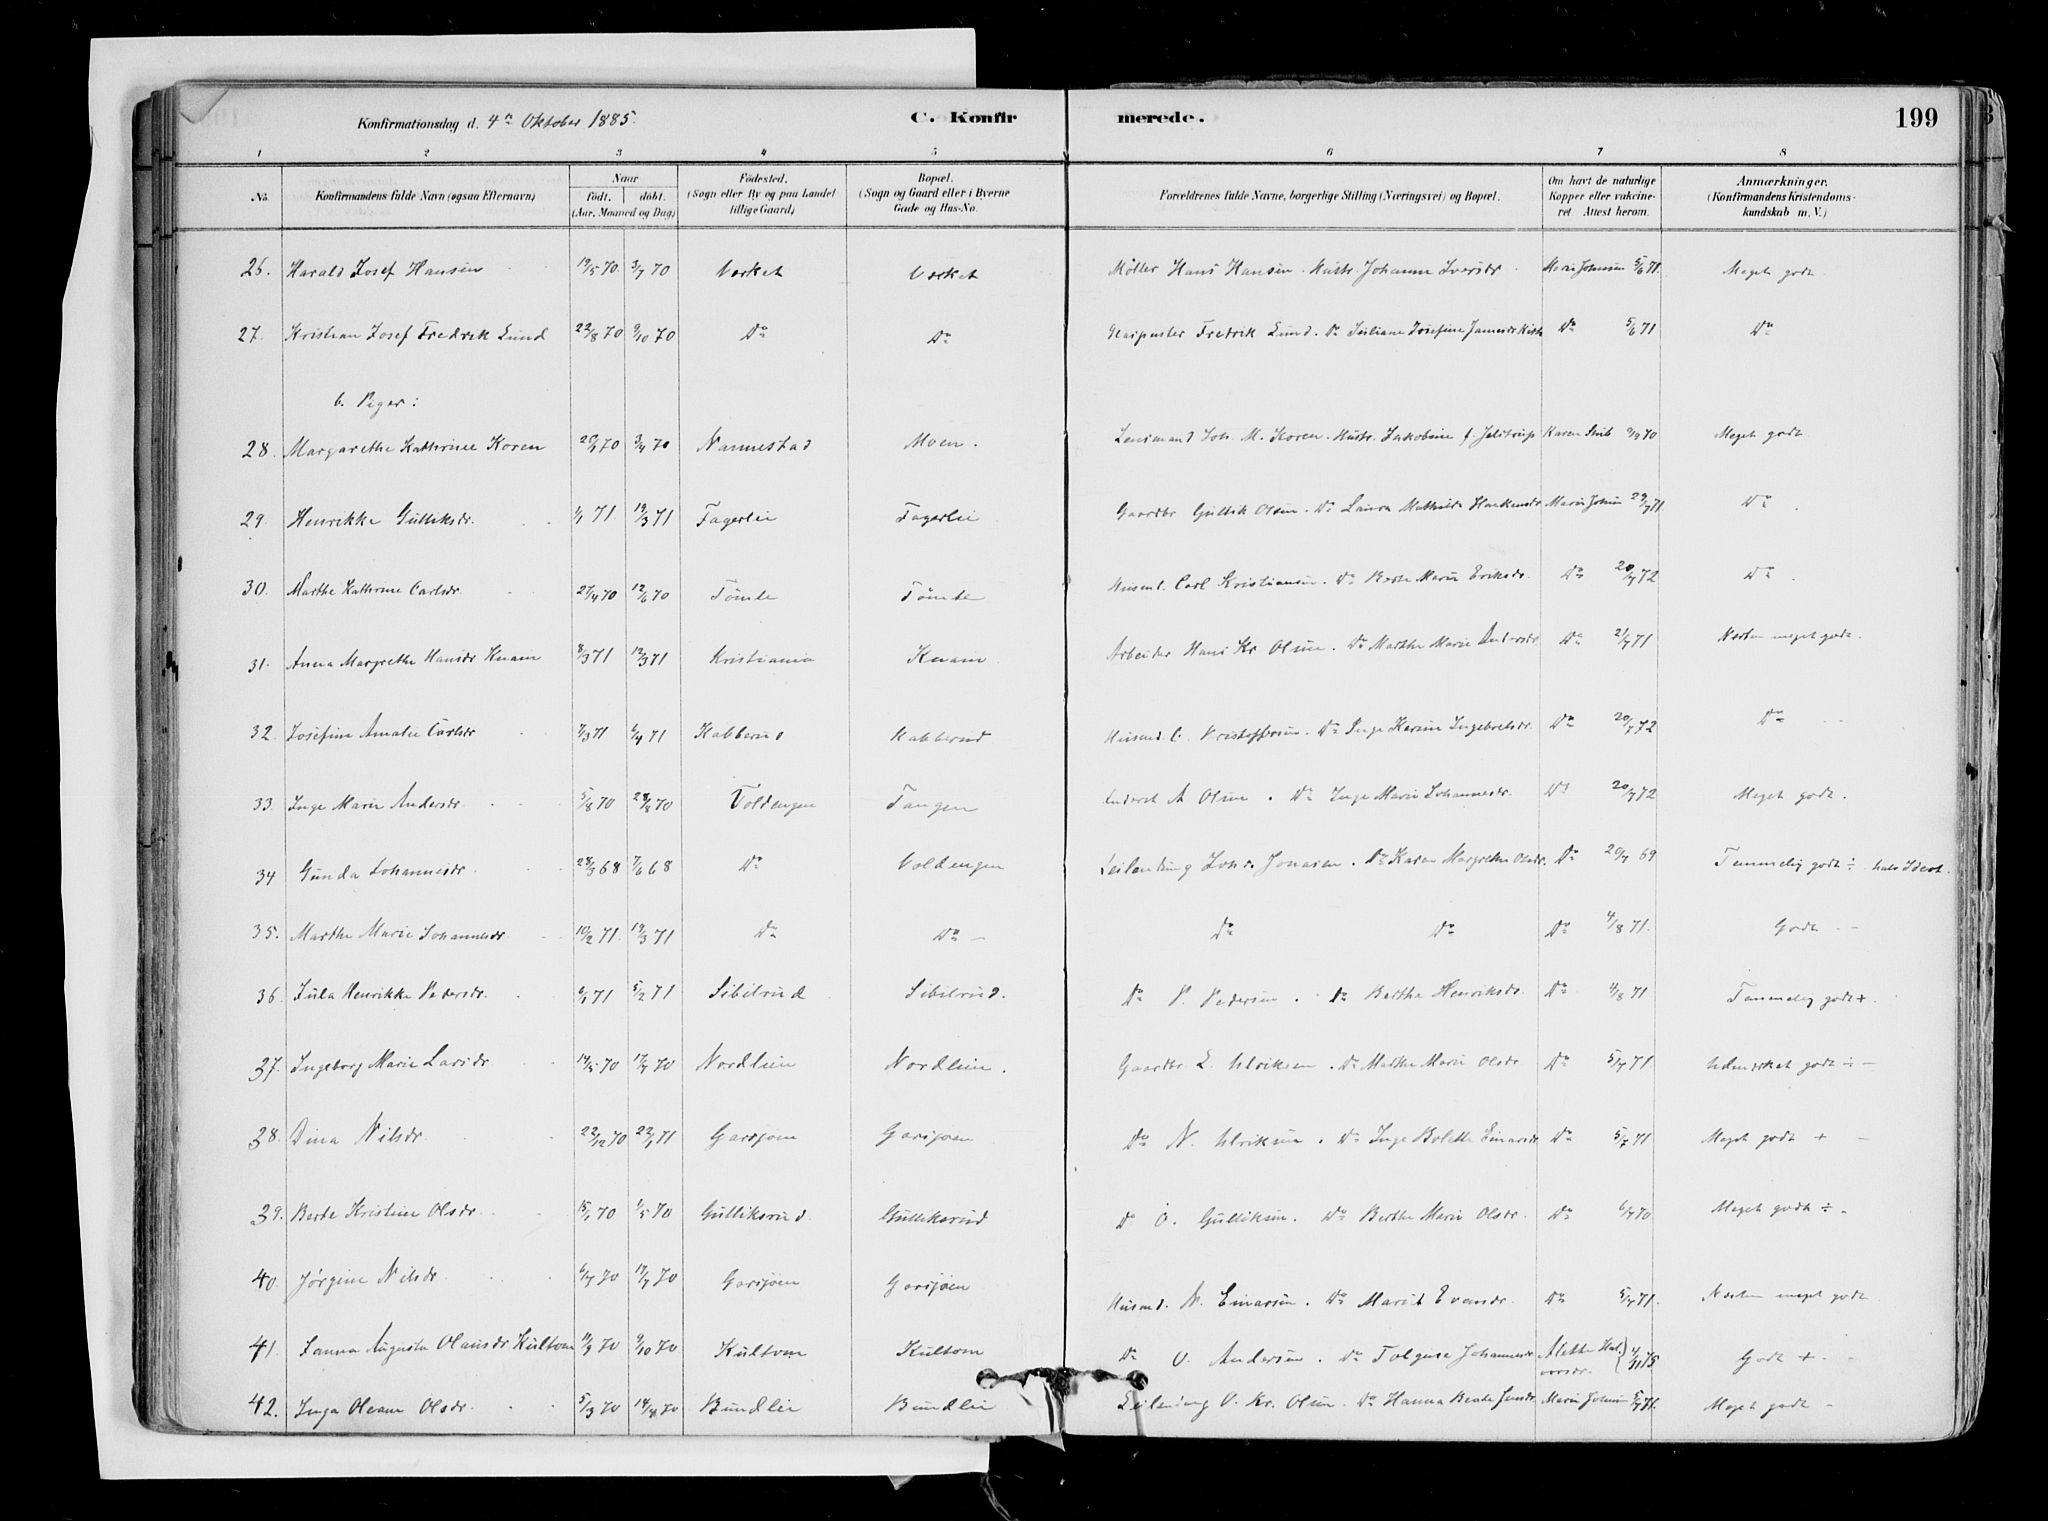 Konfirmationsdag d. 4de Oktober 1885. C. Konfirmerede. 199
1 2 3 4 5 6 7 8
No. Konfirmandens fulde Navn (ogsaa Efternavn) Naar født. døbt. (Aar, Maaned og Dag) Fødested. (Sogn eller By og paa Landet tillige Gaard) Bopæl. (Sogn og Gaard eller i Byerne Gade og Hus-No. Forældrenes fulde Navne, borgerlige Stilling (Næringsvei) og Bopæl. Om havt de naturlige Kopper eller vakcineret Attest herom. Anmærkninger. (Konfirmandens Kristendomskundskab m. V.)
26. Harald Josef Hansen 19/5 70. 3/7 70 Værket Værket Møller Hans Hansen. Hustr. Johanne Iversdr. Marie Johnsen 5/6 71. Meget godt
27. Kristian Josef Fredrik Lund 22/8 70 9/10 70 Do Do Fredrik Lund. Do Josefine Do 5/6 71 Do
b. Piger:
28. Margarethe Kathrine Koren 3/4 70 Nannestad Moen. Lensmand Joh. M. Koren. Hustr. Jakobine f. Karen 70 Meget godt
29. Henrikke Gulliksdr. 1/1 71. 19/3 71 Fagerlie Fagerlie Gaardbr Gullik Olsen. Do Laura Mathilde Haakensdr Marie Johnsen 29/7 71 Do.
30. Marthe Kathrine Carlsdr. 27/4 70 12/6 70 Tömte Tömte Husmd. Carl Kristiansen. Do Berte Marie Eriksdr. Do 20/7 72 Do.
31. Anna Margrethe Hansdr Knain 8/3 71 12/3 71 Kristiania Knain Arbeider Hans Kr Olsen. Do Marthe Marie Andersdr. Do 21/7 71 Næsten meget godt.
32. Josefine Amalie Carlsdr 7/3 71 6/4 71 Kabberud Kabberud Husmd. C. Kristoffersen. Do Inge Karine Ingebretsdr. Do 20/7 72 Do
33. Inge Marie Andersdr. 5/8 70 28/8 70 Voldengen Tangen Inderst A Olsen. Do Inge Marie Johannesdr. Do 20/7 72 Meget godt.
34 Gunda Johannesdr. 28/3 68 7/6 68 Do Voldengen Leilending Johs Jonasen. Do Karen Margrethe Olsdr. Do 20/7 69 Temmelig godt ÷ halv Idiot.
35. Marthe Marie Johannesdr. 10/2 71. 19/3 71 Do Do Do Do Do 4/8 71. Godt
36. Jula Henrikke Pedersdr. 6/1 71 5/2 71 Sibilrud Sibilrud. Do P. Pedersen. Do Berthe Henriksdr. Do 4/8 71 Temmelig godt +
37. Ingeborg Marie Larsdr. 14/5 70 17/7 70 Nordlien Nordlien. Gaardbr L. Ulriksen. Do Marthe Marie Olsdr Do 5/7 71. Udmærket godt ÷
38. Dina Nilsdr. 22/12 70 22/1 71 Garsjøen Garsjøen Do N. Ulriksen. Do Inge Bolette Einarsdr Do 5/7 71. Meget godt +
39. Berte Kristine Olsdr. 15/1 70 1/5 70 Gulliksrud. Gulliksrud Do O. Gulliksen. Do Berthe Marie Olsdr. Do 6/7 70 Meget godt ÷
40. Jørgine Nilsdr. 6/4 70 17/7 70 Garsjøen Garsjøen Husmd. N. Einarsen. Do Marit Evensdr. Do 5/7 71. Næsten meget godt
41. Janna Augusta Olausdr. Kultom 11/9 70 9/10 70 Kultom Kultom Do O. Andersen. Do Johannesdr Alette Halvorsdr. 4/11 75 Godt +
42. Inga Oleane Olsdr. 5/3 70 18/4 70 Bundlie Bundlie Leilending O. Kr. Olsen. Do Hanna Beate Jensdr. Marie Johnsen 5/7 71. Meget godt